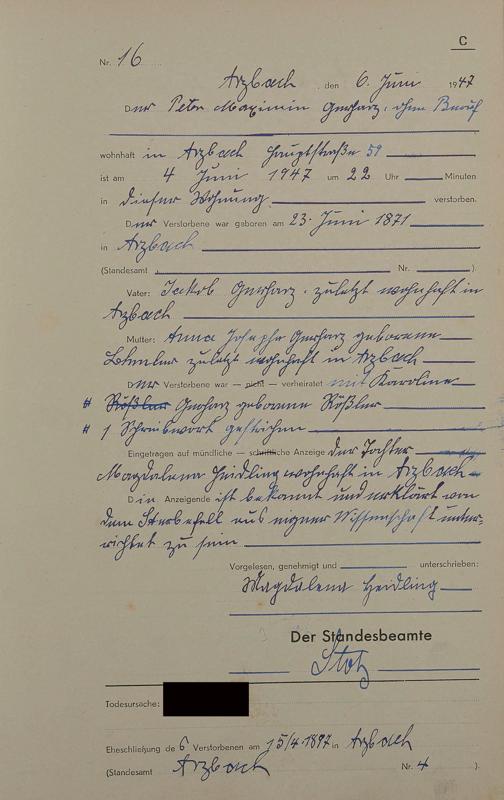 C
Nr. 16
Arzbach, den 6. Juni 1947
Der Peter Maximin Gerharz, ohne Beruf
wohnhaft in Arzbach Hauptstraße 59
ist am 4 Juni 1947 um 22 Uhr Minuten
in dieser Wohnung verstorben.
Der Verstorbene war geboren am 23. Juni 1871
in Arzbach
(Standesamt Nr. ).
Vater: Jakob Gerharz, zuletzt wohnhaft in
Arzbach
Mutter: Anna Josepha Gerharz geborene
zuletzt wohnhaft in Arzbach
Der Verstorbene war — nicht — verheiratet mit Karoline
# Rößler Gerharz geborene Rößler
# 1 Schreibwort gestrichen
Eingetragen auf mündliche — schriftliche Anzeige der Tochter
Magdalena Heidling wohnhaft in Arzbach
Die Anzeigende ist bekannt und erklärt von
dem Sterbefall aus eigner Wissenschaft unter-
richtet zu sein
Vorgelesen, genehmigt und unterschrieben:
Magdalena Heidling
Der Standesbeamte
Stotz
Todesursache:
Eheschließung des Verstorbenen am 15/4 1897 in Arzbach
(Standesamt Arzbach Nr. 4 ).